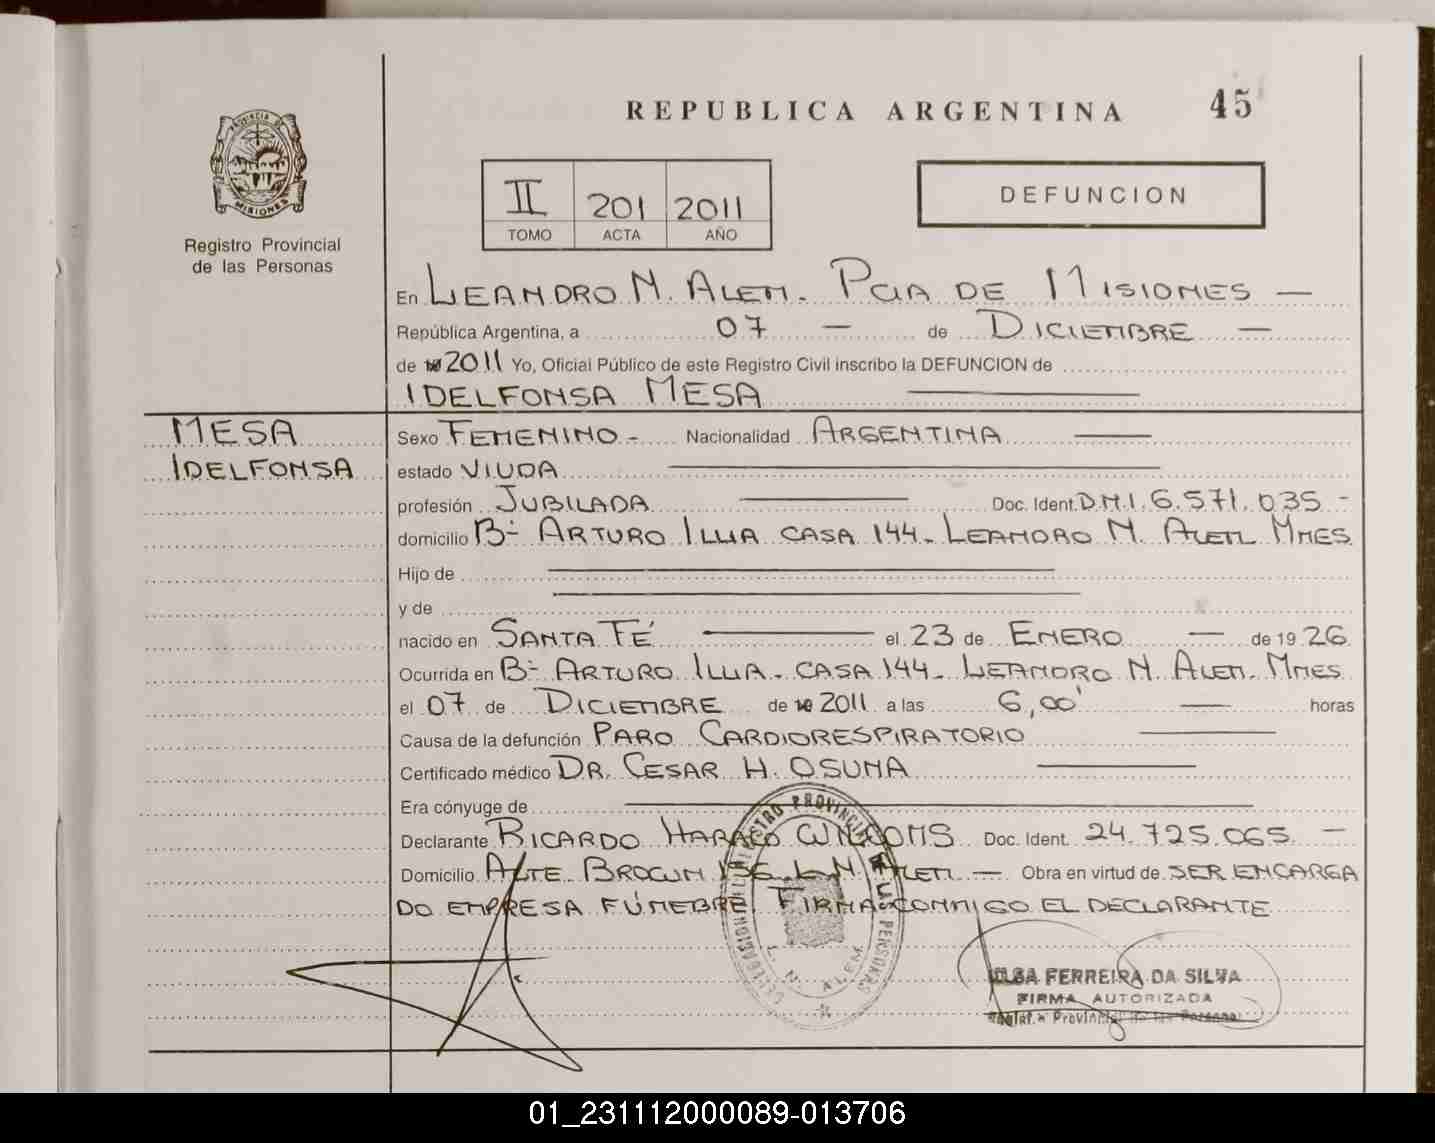 REPUBLICA ARGENTINA
45
PROVINCIA DE
MISIONES
Registro Provincial
de las Personas
II 201 2011
TOMO ACTA AÑO
DEFUNCION
En LEANDRO N. ALEM. PCIA DE MISIONES —
República Argentina, a 07 — de DICIEMBRE —
de 2011 Yo, Oficial Público de este Registro Civil inscribo la DEFUNCION de
IDELFONSA MESA
MESA
IDELFONSA
Sexo FEMENINO - Nacionalidad ARGENTINA
estado VIUDA
profesión JUBILADA Doc. Ident. D.N.I. 6.571.035 -
domicilio Bº ARTURO ILLIA CASA 144. LEANDRO N. ALEM MNES
Hijo de
y de
nacido en SANTA FÉ el 23 de ENERO — de 19 26
Ocurrida en Bº ARTURO ILLIA. CASA 144. LEANDRO N. ALEM. MNES
el 07 de DICIEMBRE de 2011 a las 6,00' — horas
Causa de la defunción PARO CARDIORESPIRATORIO
Certificado médico DR. CESAR H. OSUNA
Era cónyuge de
Declarante RICARDO Doc. Ident. 24.725.065. —
Domicilio ALTE BROWN 156. L.N. ALEM — Obra en virtud de SER ENCARGA
DO EMPRESA FÚNEBRE. FIRMA CONMIGO EL DECLARANTE
DELEGACION REGISTRO PROVINCIAL DE LAS PERSONAS
L. N. ALEM
FERREIRA DA SILVA
FIRMA AUTORIZADA
Provincial de las Personas
01_231112000089-013706